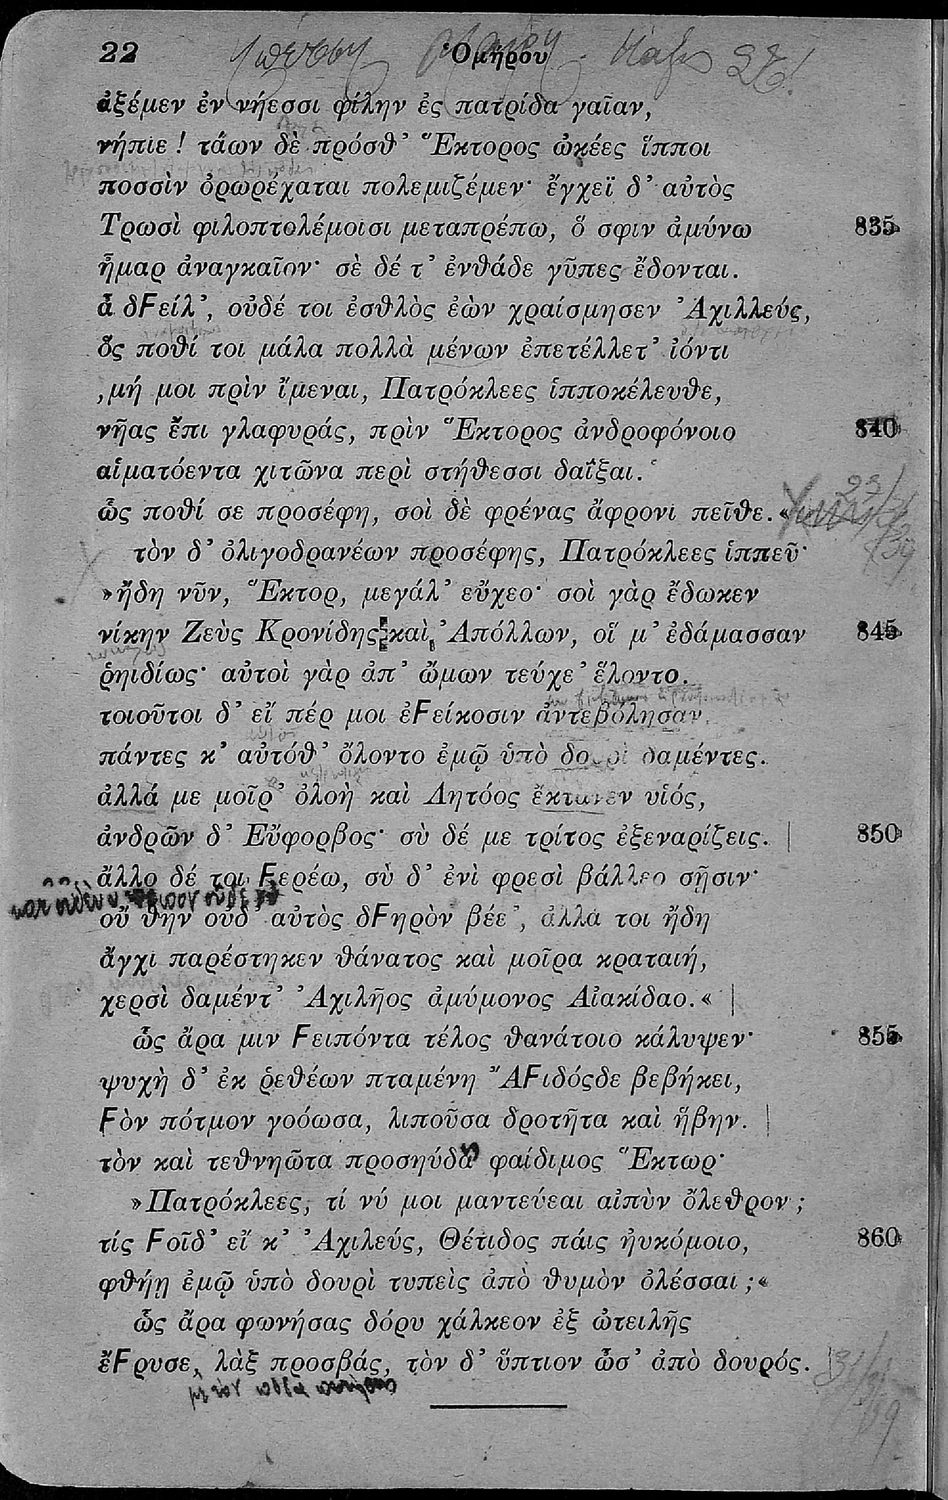 22 Ὁμήρου
ἀξέμεν ἐν νήεσσι φίλην ἐς πατρίδα γαῖαν,
νήπιε! τάων δὲ πρόσθ’ Ἕκτορος ὠκέες ἵπποι
ποσσὶν ὀρωρέχαται πολεμιζέμεν· ἔγχεϊ δ’ αὐτὸς
Τρωσὶ φιλοπτολέμοισι μεταπρέπω, ὅ σφιν ἀμύνω 835
ἦμαρ ἀναγκαῖον· σὲ δέ τ’ ἐνθάδε γῦπες ἔδονται.
ἆ δϜείλ’, οὐδέ τοι ἐσθλὸς ἐὼν χραίσμησεν Ἀχιλλεύς,
ὅς ποθί τοι μάλα πολλὰ μένων ἐπετέλλετ’ ἰόντι
‚μή μοι πρὶν ἴμεναι, Πατρόκλεες ἱπποκέλευθε,
νῆας ἔπι γλαφυράς, πρὶν Ἕκτορος ἀνδροφόνοιο 840
αἱματόεντα χιτῶνα περὶ στήθεσσι δαΐξαι.‘
ὥς ποθί σε προσέφη, σοὶ δὲ φρένας ἄφρονι πεῖθε.«
τὸν δ’ ὀλιγοδρανέων προσέφης, Πατρόκλεες ἱππεῦ·
»ἤδη νῦν, Ἕκτορ, μεγάλ’ εὔχεο· σοὶ γὰρ ἔδωκεν
νίκην Ζεὺς Κρονίδης καὶ Ἀπόλλων, οἵ μ’ ἐδάμασσαν 845
ῥηιδίως· αὐτοὶ γὰρ ἀπ’ ὤμων τεύχε’ ἕλοντο.
τοιοῦτοι δ’ εἴ πέρ μοι ἐϜείκοσιν ἀντεβόλησαν,
πάντες κ’ αὐτόθ’ ὄλοντο ἐμῷ ὑπὸ δουρὶ δαμέντες.
ἀλλά με μοῖρ’ ὀλοὴ καὶ Λητόος ἔκτανεν υἱός,
ἀνδρῶν δ’ Εὔφορβος· σὺ δέ με τρίτος ἐξεναρίζεις. 850
ἄλλο δέ τοι Ϝερέω, σὺ δ’ ἐνὶ φρεσὶ βάλλεο σῇσιν·
οὔ θην οὐδ’ αὐτὸς δϜηρὸν βέε’, ἀλλά τοι ἤδη
ἄγχι παρέστηκεν θάνατος καὶ μοῖρα κραταιή,
χερσὶ δαμέντ’ Ἀχιλῆος ἀμύμονος Αἰακίδαο.«
ὣς ἄρα μιν Ϝειπόντα τέλος θανάτοιο κάλυψεν· 855
ψυχὴ δ’ ἐκ ῥεθέων πταμένη ἌϜιδόσδε βεβήκει,
Ϝὸν πότμον γοόωσα, λιποῦσα δροτῆτα καὶ ἥβην.
τὸν καὶ τεθνηῶτα προσηύδα φαίδιμος Ἕκτωρ·
»Πατρόκλεες, τί νύ μοι μαντεύεαι αἰπὺν ὄλεθρον;
τίς Ϝοῖδ’ εἴ κ’ Ἀχιλεύς, Θέτιδος πάις ἠυκόμοιο, 860
φθήῃ ἐμῷ ὑπὸ δουρὶ τυπεὶς ἀπὸ θυμὸν ὀλέσσαι;«
ὣς ἄρα φωνήσας δόρυ χάλκεον ἐξ ὠτειλῆς
ἔϜρυσε, λὰξ προσβάς, τὸν δ’ ὕπτιον ὦσ’ ἀπὸ δουρός.